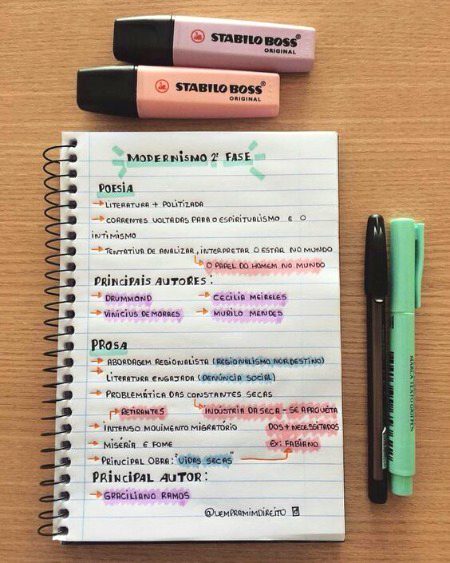 STABILO BOSS®
ORIGINAL
STABILO BOSS®
ORIGINAL
MODERNISMO 2ª FASE
POESIA
→ LITERATURA + POLITIZADA
→ CORRENTES VOLTADAS PARA O ESPIRITUALISMO E O
INTIMISMO
→ TENTATIVA DE ANALIZAR, INTERPRETAR O ESTAR NO MUNDO
↳ O PAPEL DO HOMEM NO MUNDO
PRINCIPAIS AUTORES:
→ DRUMMOND → CECÍLIA MEIRELES
→ VINICIUS DE MORAES → MURILO MENDES
PROSA
→ ABORDAGEM REGIONALISTA (REGIONALISMO NORDESTINO)
→ LITERATURA ENGAJADA (DENÚNCIA SOCIAL)
→ PROBLEMÁTICA DAS CONSTANTES SECAS
↳ RETIRANTES ↳ INDÚSTRIA DA SECA - SE APROVEITA
→ INTENSO MOVIMENTO MIGRATÓRIO DOS + NECESSITADOS
→ MISÉRIA E FOME EX: FABIANO
→ PRINCIPAL OBRA: "VIDAS SECAS"
PRINCIPAL AUTOR:
→ GRACILIANO RAMOS
@VEMPRAMIMDIREITO